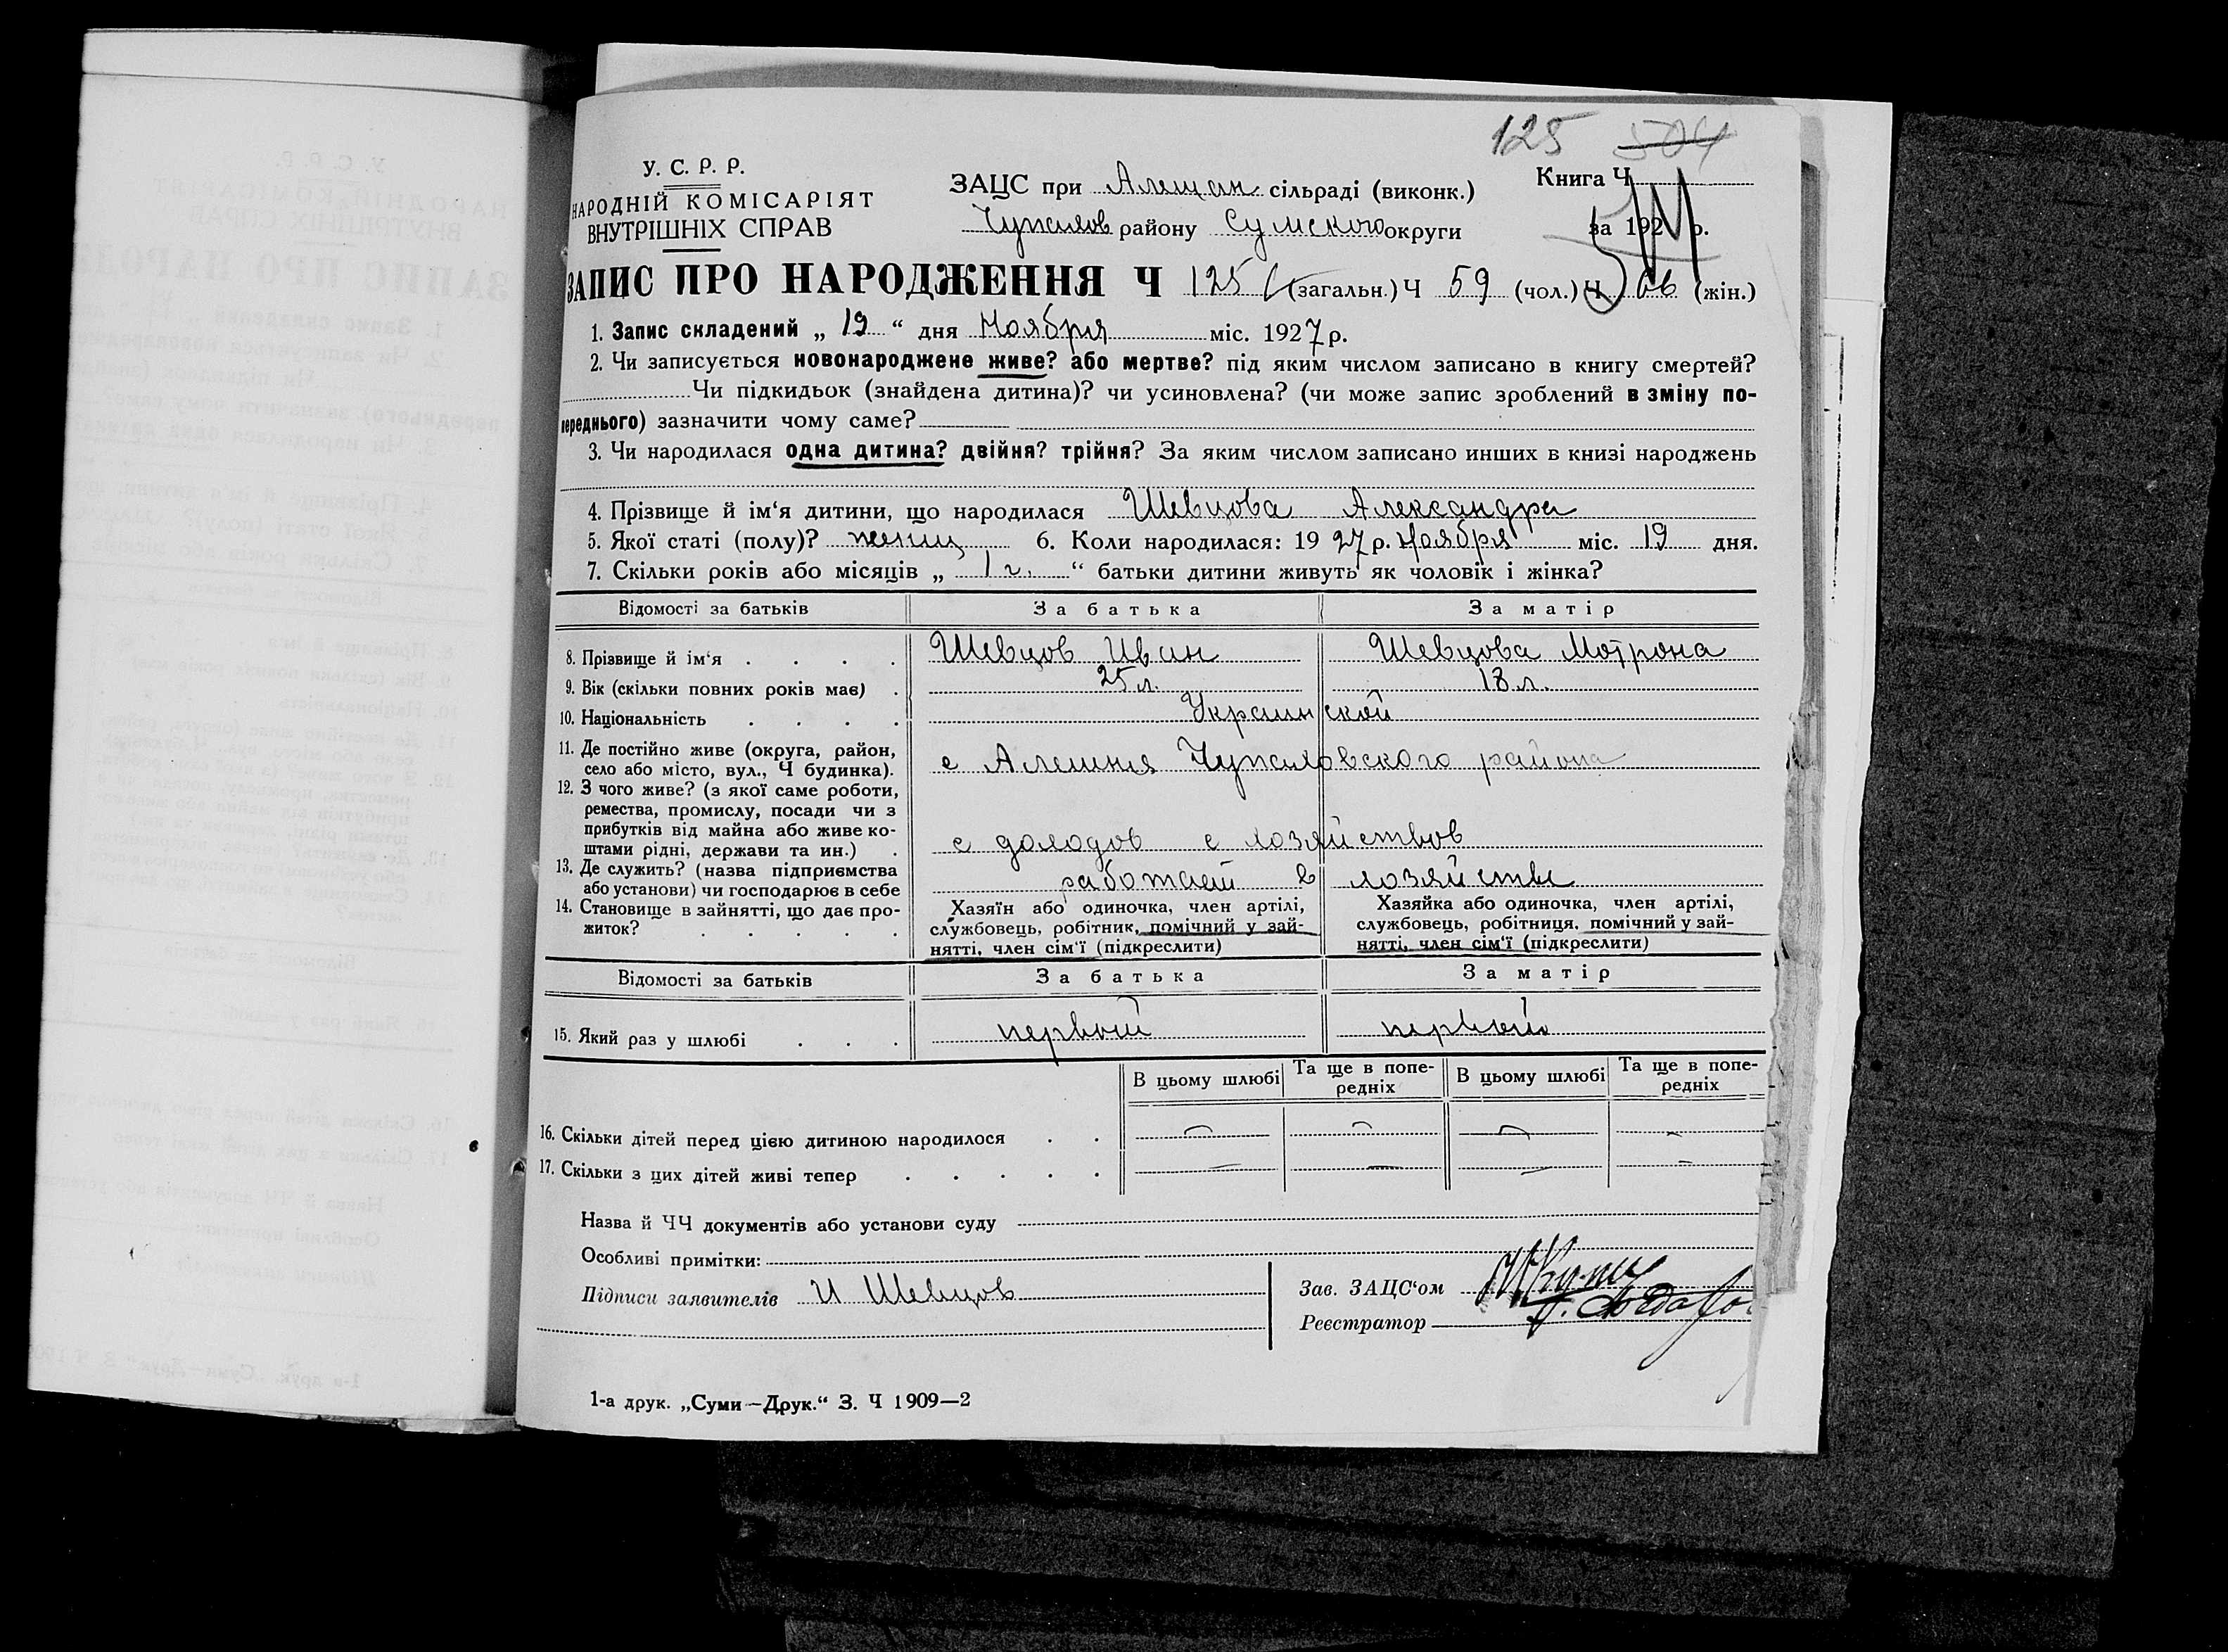 125 504
У. С. Р. Р.
НАРОДНІЙ КОМІСАРІЯТ
ВНУТРІШНІХ СПРАВ
ЗАЦС при Алешан сільраді (виконк.)
Чупахов району Сумского округи
Книга Ч
за 192 р.
ЗАПИС ПРО НАРОДЖЕННЯ Ч 125 (загальн.) Ч 59 (чол.) Ч 66 (жін.)
1. Запис складений „ 19 “ дня Ноября міс. 1927 р.
2. Чи записується новонароджене живе? або мертве? під яким числом записано в книгу смертей?
Чи підкидьок (знайдена дитина)? чи усиновлена? (чи може запис зроблений в зміну по-
переднього) зазначити чому саме?
3. Чи народилася одна дитина? двійня? трійня? За яким числом записано инших в книзі народжень
4. Прізвище й ім‘я дитини, що народилася Шевцова Александра
5. Якої статі (полу)? женщ 6. Коли народилася: 19 27 р. Ноября міс. 19 дня.
7. Скільки років або місяців „ 1 г. “ батьки дитини живуть як чоловік і жінка?
Відомості за батьків За батька За матір
8. Прізвище й ім‘я . . . . Шевцов Иван Шевцова Мотрона
9. Вік (скільки повних років має) . 25 л. 18 л.
10. Національність . . . . Украинской
11. Де постійно живе (округа, район,
село або місто, вул., Ч будинка). с Алешня Чупаховского района
12. З чого живе? (з якої саме роботи,
ремества, промислу, посади чи з
прибутків від майна або живе ко-
штами рідні, держави та ин.) . с доходов с хозяйствов
13. Де служить? (назва підприємства
або установи) чи господарює в себе работает в хозяйстве
14. Становище в зайнятті, що дає про-
житок? . . . . .
Хазяїн або одиночка, член артілі,
службовець, робітник, помічний у зай-
нятті, член сім‘ї (підкреслити)
Хазяйка або одиночка, член артілі,
службовець, робітниця, помічний у зай-
нятті, член сім‘ї (підкреслити)
Відомості за батьків За батька За матір
15. Який раз у шлюбі . . . первый первый
В цьому шлюбі Та ще в попе-
редніх В цьому шлюбі Та ще в попе-
редніх
16. Скільки дітей перед цією дитиною народилося . .
17. Скільки з цих дітей живі тепер . . . . .
Назва й ЧЧ документів або установи суду
Особливі примітки:
Підписи заявителів И Шевцов
Зав. ЗАЦС‘ом
Реєстратор
1-а друк. „Суми—Друк.“ З. Ч 1909—2